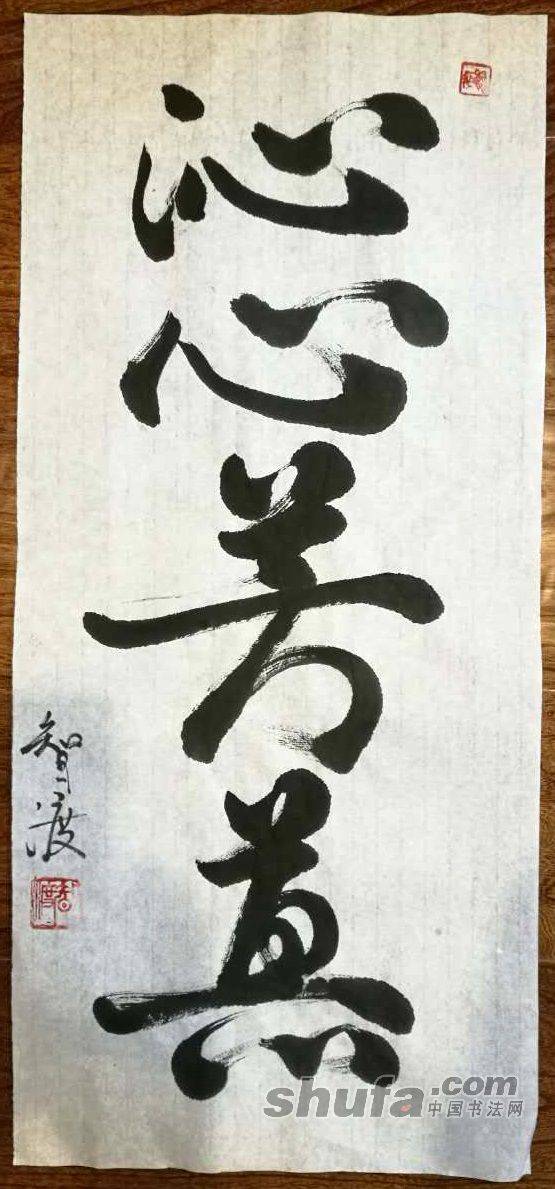 沁心芳蕙
智渡
shufa.com
中国书法网